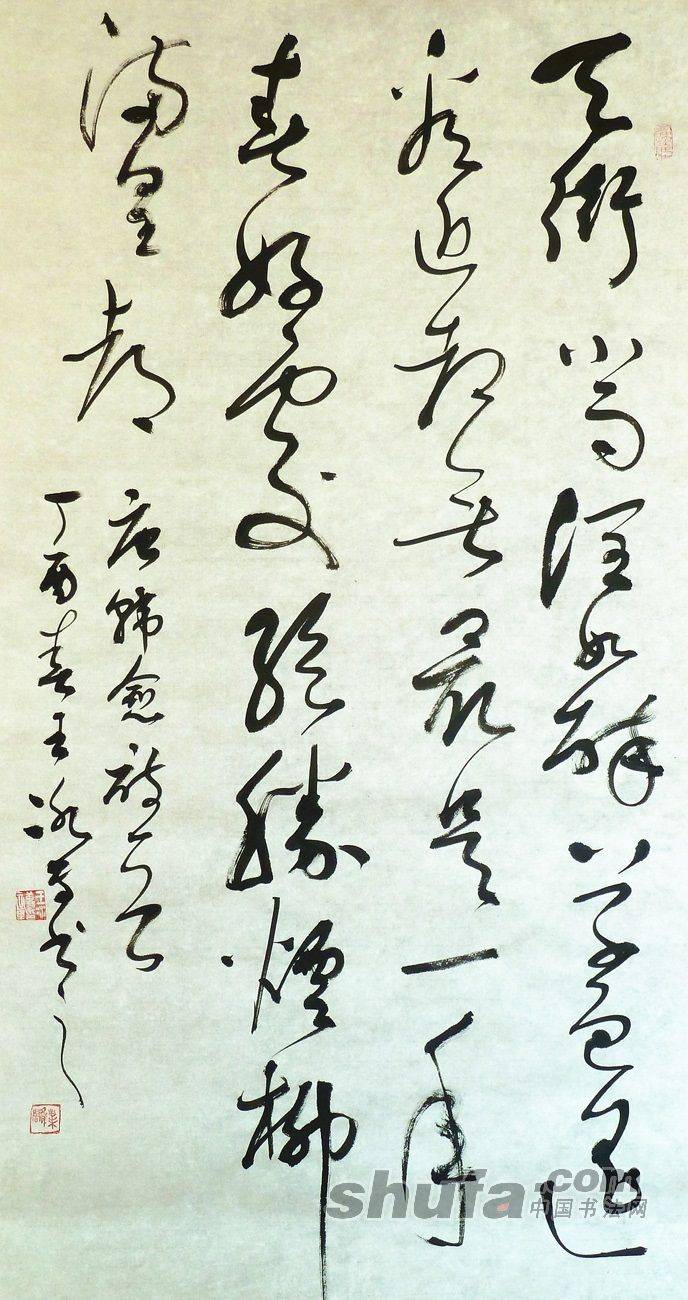 天街小雨潤如酥草色遥
看近却無最是一年
春好處絕勝煙柳
滿皇都
唐韓愈詩一首
丁酉春王書之
shufa.com
中国书法网